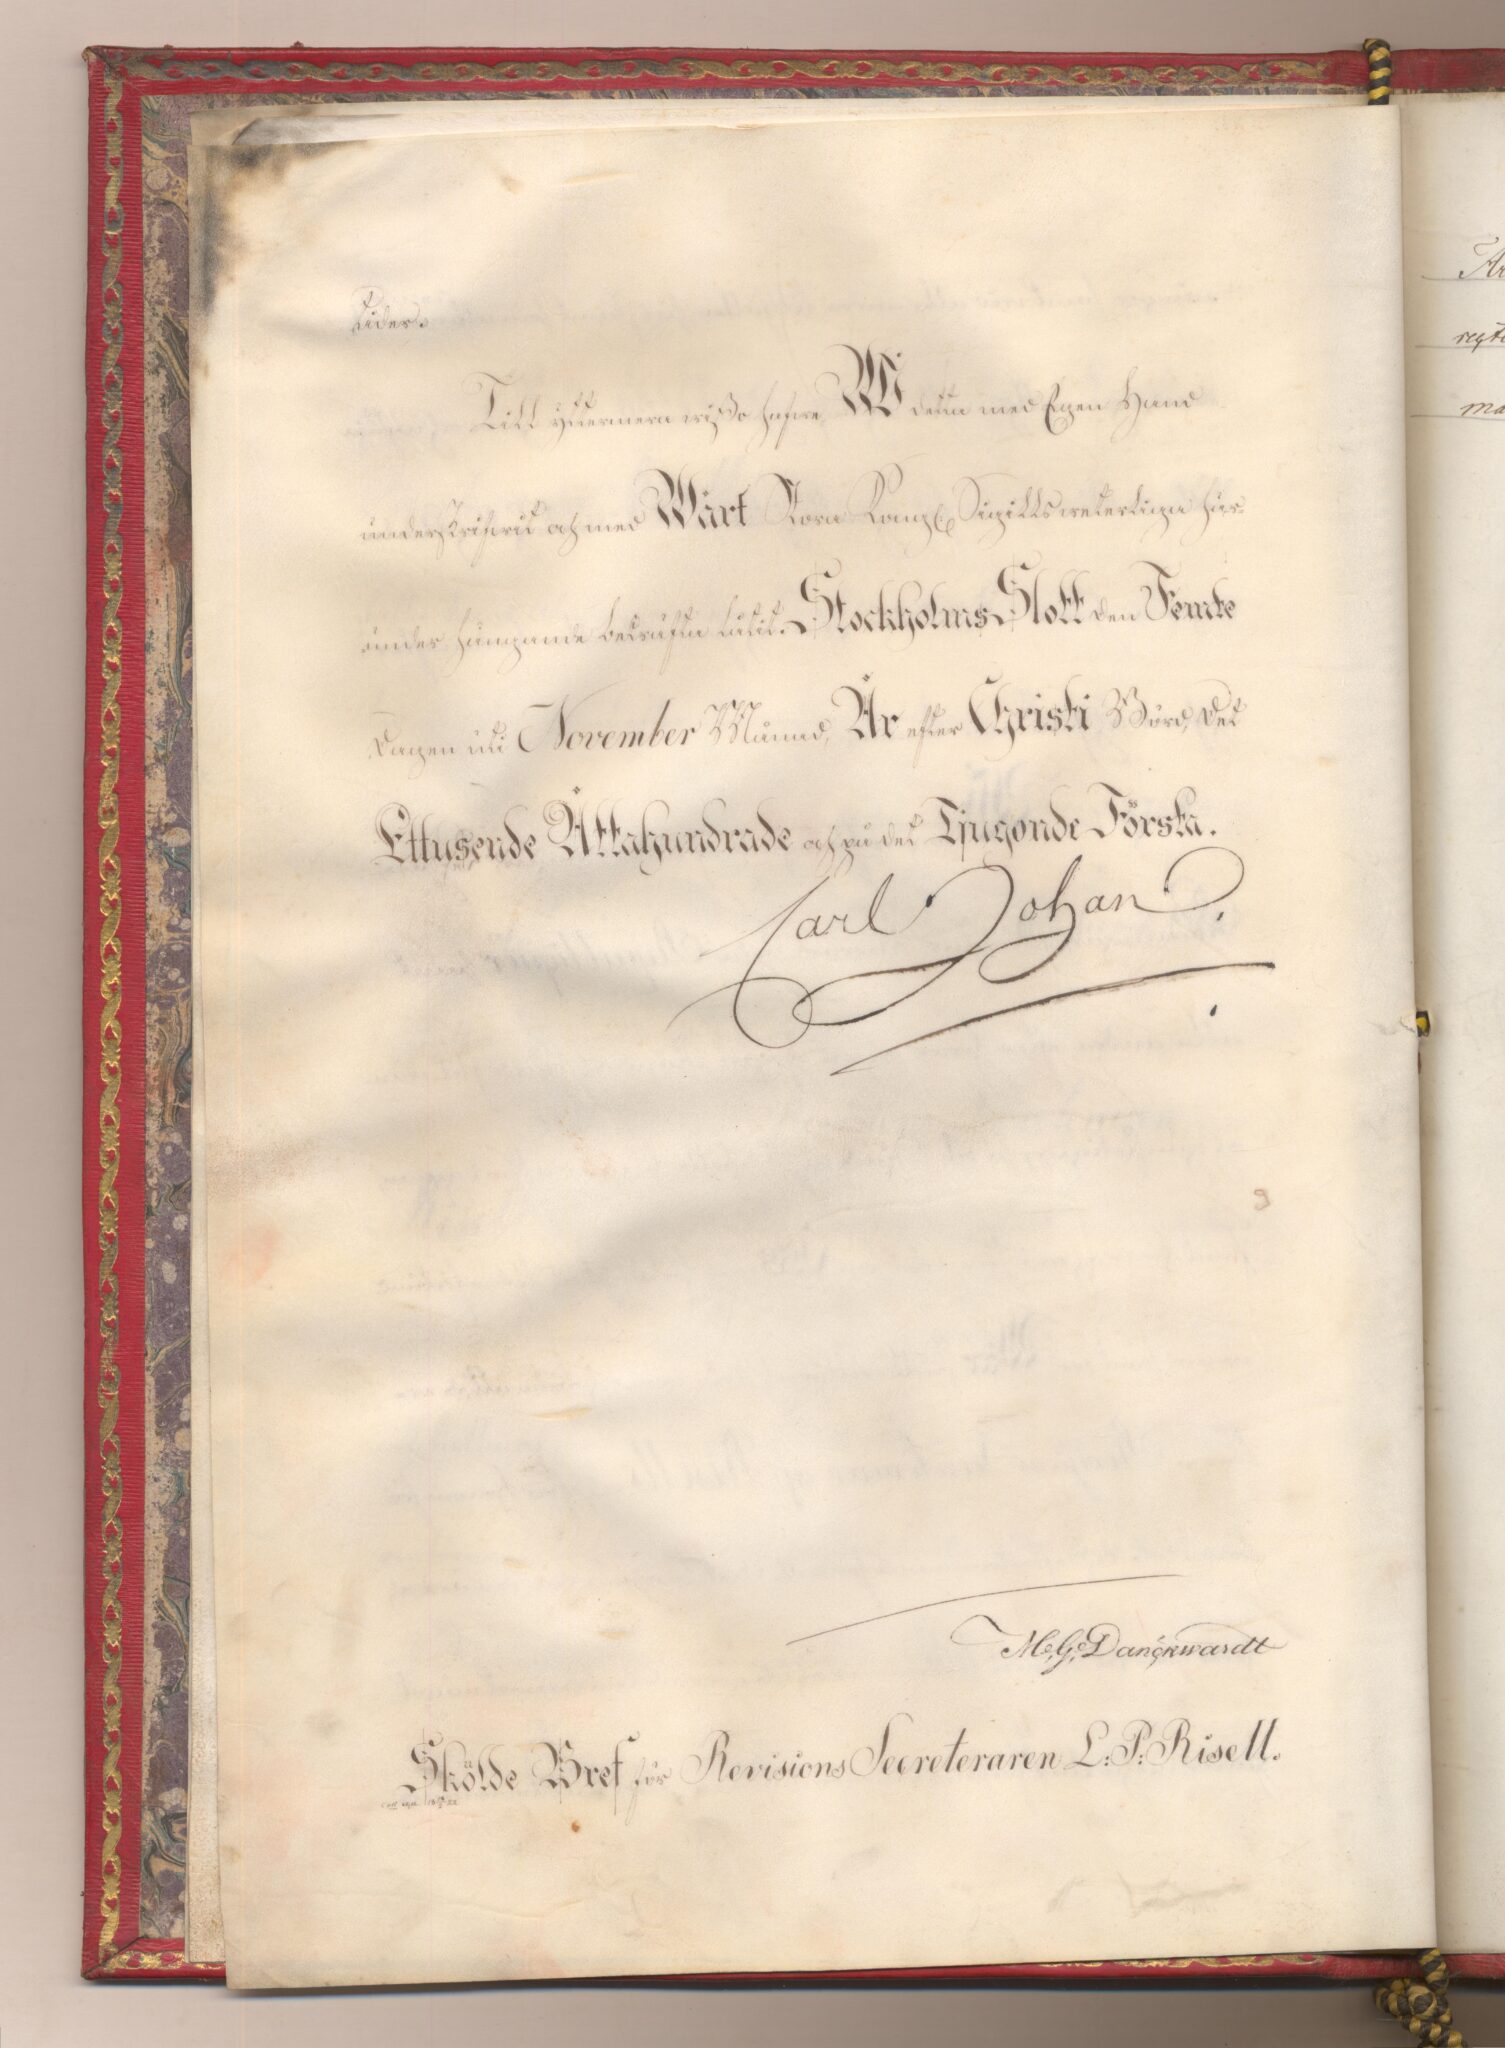 tider.
Till yttermera wisso hafve Wi detta med Egen Hand
underskrifvit och med Wårt Stora Kongl. Sigills wetterliga här-
under hängande bekräfta låtit. Stockholms Slott den Femte
dagen uti November Månad, År efter Christi Börd, det
Ettusende Åttahundrade och på det Tjugonde Första.
Carl Johan.
M. G. Danckwardt
Skölde Bref för Revisions Secreteraren L: P: Risell.
Ar
regt
ma